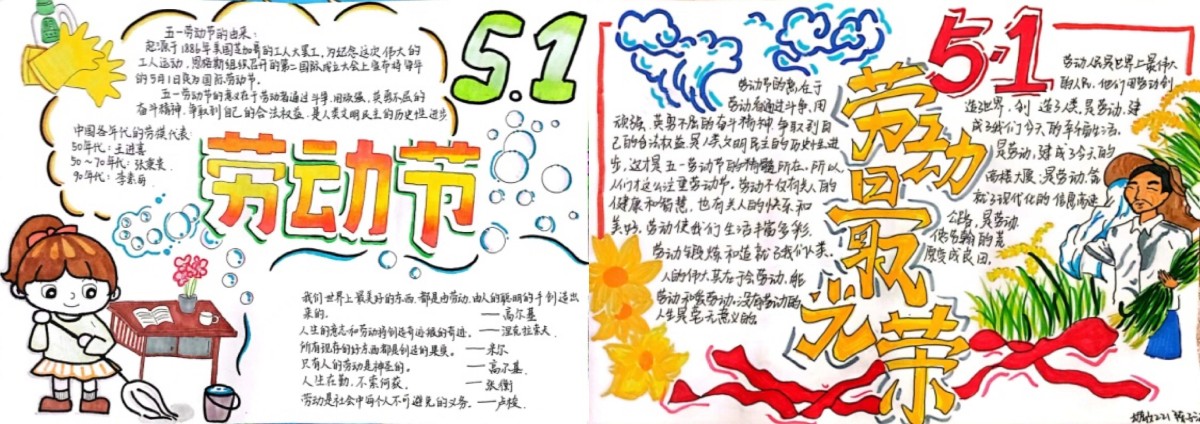 五一劳动节的由来:
起源于1886年美国芝加哥的工人大罢工,为纪念这次伟大的
工人运动,恩格斯组织召开的第二国际成立大会上宣布将每年
的5月1日定为国际劳动节。
五一劳动节的意义在于劳动者通过斗争,用顽强、英勇不屈的
奋斗精神,争取到自己的合法权益,是人类文明民主的历史性进步
中国各年代的劳模代表:
50年代:王进喜
50~70年代:张秉贵
90年代:李素丽
5.1
劳动节
我们世界上最美好的东西,都是由劳动、由人的聪明的手创造出
来的。 ——高尔基
人生的意志和劳动将创造奇迹般的奇迹。——涅克拉索夫
所有现存的好东西都是创造的果实。 ——米尔
只有人的劳动是神圣的。 ——高尔基.
人生在勤,不索何获。 ——张衡
劳动是社会中每个人不可避免的义务。——卢梭
5·1
劳动最光荣
劳动节的意义在于
劳动者通过斗争、用
顽强、英勇不屈的奋斗精神,争取到自
己的合法权益,是人类文明民主的历史性进
步,这才是五一劳动节的精髓所在。所以
人们才这么注重劳动节。劳动不仅有关人的
健康和智慧,也有关人的快乐和
美好,劳动使我们生活丰富多彩.
劳动锻炼和造就了我们人类、
人的伟大,其在于会劳动、能
劳动和爱劳动,没有劳动的
人生是毫无意义的。
劳动人民是世界上最伟大
的人民,他们用劳动创
造世界,创造了人类,是劳动,建
成了我们今天的幸福生活,
是劳动,建成了今天的
高楼大厦,是劳动,筑
就了现代化的信息高速
公路,是劳动,
使浩瀚的荒
原变成良田。